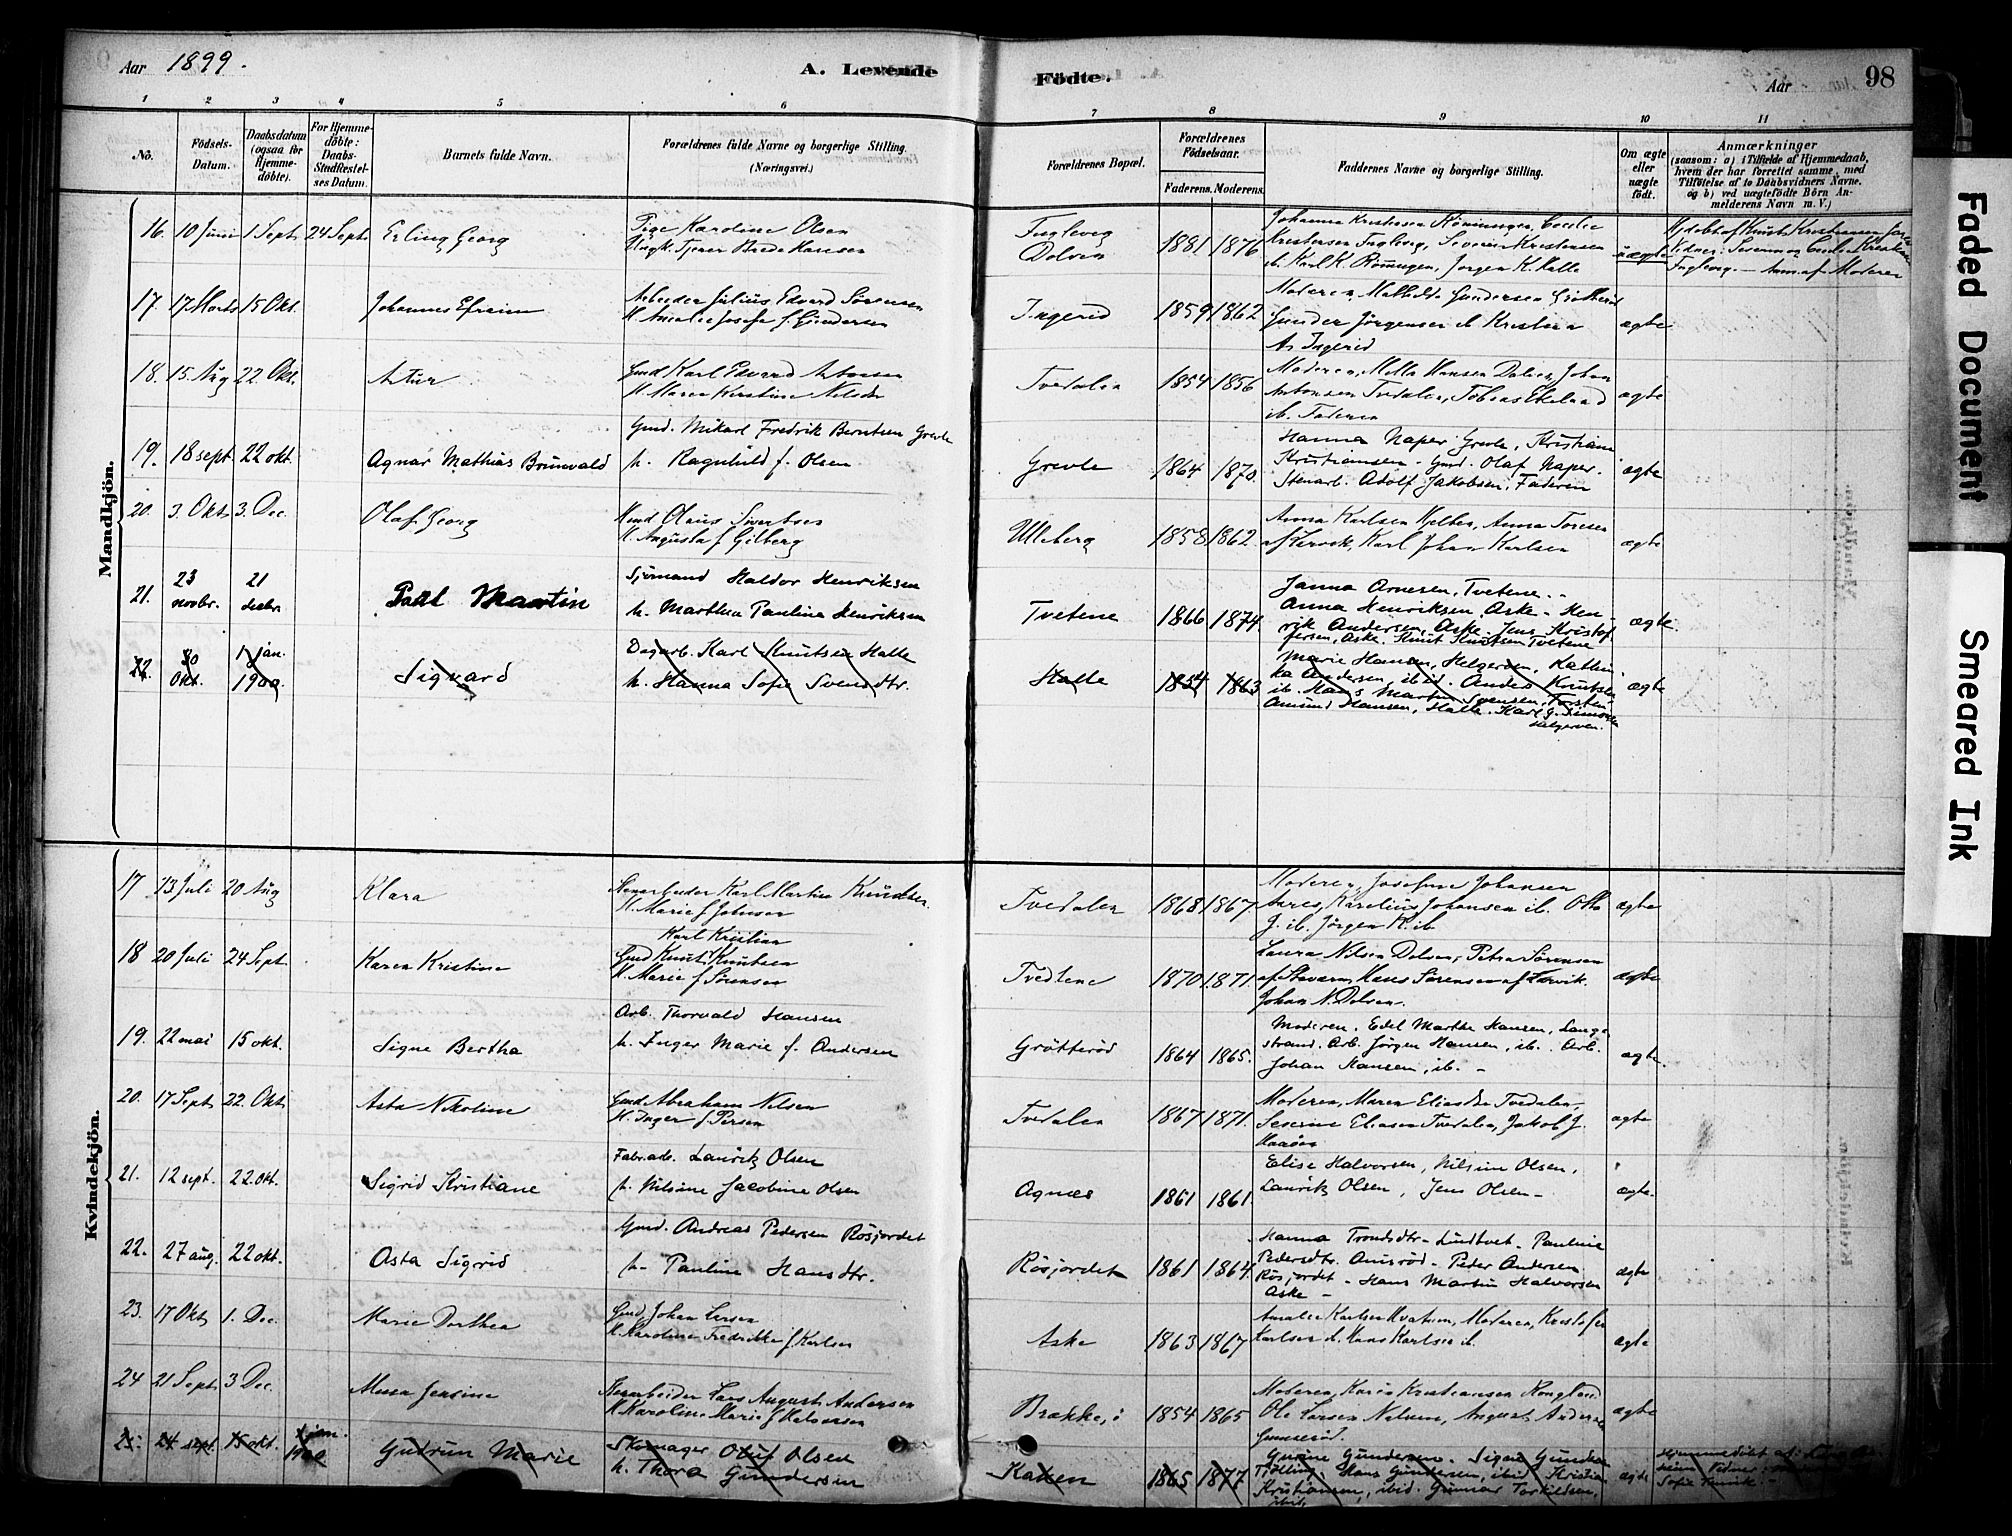 Aar 1899.
A. Levende Födte.
Aar
98
1 2 3 4 5 6 7 8 9 10 11
No.
Födsels-Datum.
Daabsdatum (ogsaa for Hjemme-döbte).
For Hjemme-döbte: Daabs-Stadfæstel-ses Datum.
Barnets fulde Navn.
Forældrenes fulde Navne og borgerlige Stilling.
(Næringsvei.)
Forældrenes Bopæl.
Forældrenes Födselsaar.
Faderens. Moderens.
Faddernes Navne og borgerlige Stilling.
Om ægte eller uægte födt.
Anmærkninger
(saasom: a) i Tilfælde af Hjemmedaab,
hvem der har forrettet samme, med
Tilföielse af to Daabsvidners Navne.
og b) ved uægtefödte Börn An-
melderens Navn m. V.)
Mandkjön.
16. 10 Juni 1 Sept. 24 Sept. Erling Georg
Pige Karoline Olsen
Ungk. Tjener Brede Hansen
Fuglevig
Dolven
1881 1876
Kristensen Fuglevig, Severin Kristensen
ib. Karl K. Rönningen, Jørgen K. Halle
uægte
17. 17 Marts 15 Okt. Johannes Efraim
Arbeider Julius Edvard Sörensen
H. Amalie Josefa f. Gundersen
Ingerid
1859 1862
Moderen, Mathilde Gundersen Grötteröd
Gunder Jörgensen ib Kristian
A. Ingerid
ægte
18. 15 Aug 22. Okt. Artur
Gmd Karl Edvard Antonsen
H. Maren Kirstine Nilsdtr
Tvedalen
1854 1856
Moderen, Mella Hansen Dalen, Johan
Antonsen Tvedalen, Tobias Ekelund
ib. Faderen
ægte
19. 18 sept. 22 okt. Agnar Mathias Brunvald
Gmd. Mikael Fredrik Berntsen Grevle
h. Ragnhild f. Olsen
Grevle
1864 1870.
Hanna Naper Grevle, Kristiane
Kristiansen - Gmd. Olaf Naper.
Stenarb. Adolf Jakobsen, Faderen
ægte
20. 3. Okt 3. Dec. Olaf Georg
Gmd Olaus Sivertsen
H. Augusta f Gilberg
Ulleberg
1858 1862.
Anna Karlsen Melbee, Anna Toresen
af Larvik, Karl Johan Karlsen
ægte
21. 23 novbr. 21 decbr. Paul Martin
Sjömand Haldor Henriksen
h. Marthea Pauline Henriksen
Tvetene
1866 1874.
Janna Arnesen, Tvetene. -
Anna Henriksen, Aske - Hen
rik Andersen, Aske. Jens Kristof
fersen, Aske. Knut Knutsen Tvetene
ægte.
22. 30 Okt. 1 jan. 1900. Sigvard
Dagarb. Karl Knutsen Halle
h. Hanna Sofie Svensdtr.
Halle
1854 1863
Marie Hansen, Helgeroen, Kathin
ka Andersen, ibid. Anders Knutsen
ib. Hans Martin Svensen, Torsten
Amund Hansen, Halle. Karl G. Simonsen
Helgeroen.
ægte
Kvindekjön.
17 13 Juli 20 Aug Klara
Stenarbeider Karl Martin Knudsen
H. Marie f Johnsen
Tvedalen
1868 1867
Moderen, Josefine Johansen
Aares, Karelius Johansen ib. Otto
J. ib. Jörgen K. ib
ægte
18 20 Juli 24 Sept. Karen Kristine
Karl Kristian
Gmd Knut Knutsen
H. Marie f Sörensen
Tvedtene
1870 1871.
Laura Nilsen Dolsen, Petra Sörensen
af Stavern, Hans Sörensen af Larvik.
Johan N. Dolsen.
ægte
19. 22 mai 15 okt. Signe Bertha
Arb. Thorvald Hansen
h. Inger Marie f. Andersen
Grötteröd
1864 1865.
Moderen. Edel Marthe Hansen, Lange
strand. Arb. Jörgen Hansen, ib. Arb.
Johan Hansen, ib. -
ægte.
20. 17 Sept 22. Okt Asta Nikoline
Gmd Abraham Nilsen
H. Inger f Persen
Tvedalen
1867 1871.
Moderen, Maren Eliasdtr Tvedalen,
Severine Eliasen Tvedalen, Jakob J.
ægte
21. 12 sept. 22. okt. Sigrid Kristiane
Fabr.arb. Lauritz Olsen
h. Nilsine Jacobine Olsen
Agnæs
1861 1861.
Elise Halvorsen, Nilsine Olsen,
Lauritz Olsen, Jens Olsen -
ægte.
22. 27 aug. 22 okt. Asta Sigrid
Gmd. Andreas Pedersen Rösjordet
h. Pauline Hansdtr.
Rösjordet
1861 1864.
Hanna Trondsdtr. Lindtvet - Pauline
Pedersdtr. Anisröd - Peder Andersen
Rösjordet - Hans Martin Halvorsen
Aske -
ægte
23. 17 Okt 1. Dec. Marie Dorthea
Gmd Johan Larsen
H. Karoline Fredrikke f Karlsen
Aske
1863 1867
Amalie Karlsen Kvatsum, Moderen, Kristofer
Karlsen ib. Hans Karlsen ib.
ægte
24 21 Sept. 3 Dec. Musa Jensine
Stenarbeider Lars August Andersen
H. Karoline Marie f Halvorsen
Brække, i
1854 1865
Moderen, Karen Kristiansen Ronglan
Ole Larsen Nalum, August Andersen
ægte
25. 24 sept. 15 okt. 1 jan. 1900 Gudrun Marie
Skomager Oluf Olsen
h. Thora Gundersen
Kaken
1865 1877
Gurine Gundersen. Signe Gundersen
Tjölling. Hans Gundersen, ibid. Kristian
Kristiansen, ibid. Gunnar Torkildsen,
ibid.
ægte
Hjemmedöbt af:
Faded Document
Smeared Ink